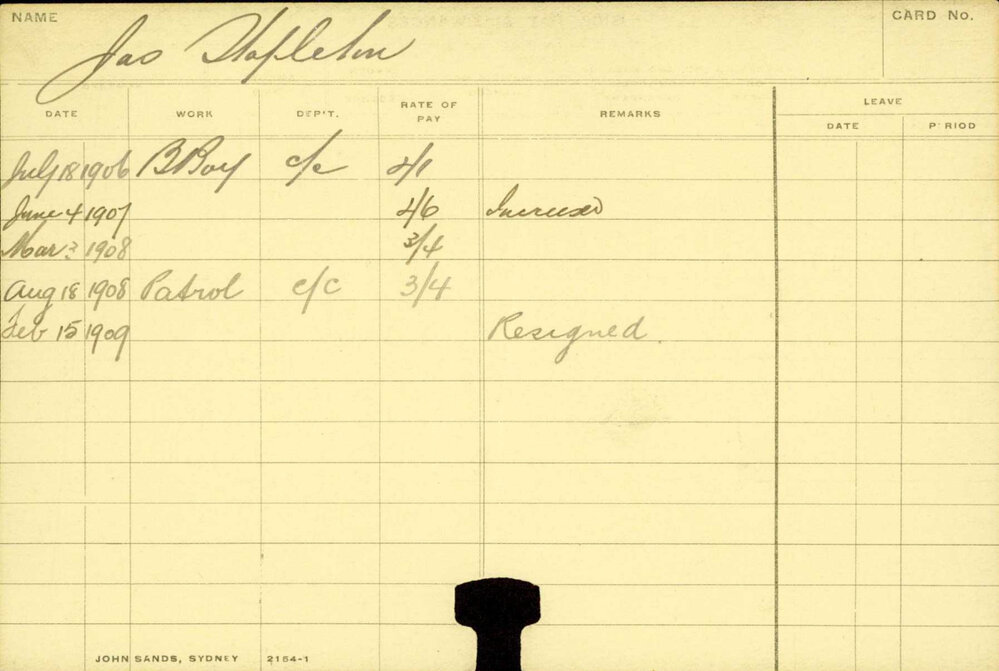 NAME
Jas Stapleton
CARD No.
DATE WORK DEP'T. RATE OF PAY REMARKS LEAVE
DATE P RIOD
July 18 1906 B Boy c/c 2/1
June 4 1907 2/6 Increased
Mar 3 1908 3/4
Aug 18 1908 Patrol c/c 3/4
Feb 15 1909 Resigned.
JOHN SANDS, SYDNEY 2154-1